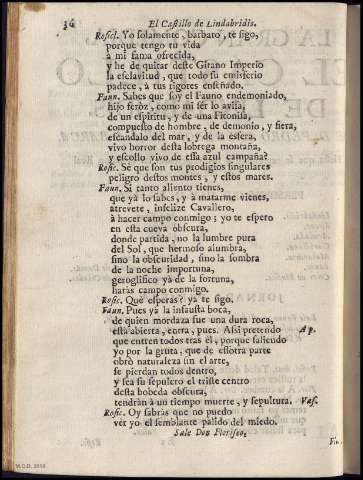 36 El Castillo de Lindabridis.
Rosicl. Yo solamente, barbaro, te sigo,
porque tengo tu vida
à mi fama ofrecida,
y he de quitar deste Gitano Imperio
la esclavitud, que todo su emisferio
padece, à tus rigores enseñado.
Faun. Sabes que soy el Fauno endemoniado,
hijo feròz, como mi sér lo avisa,
de un espiritu, y de una Fitonisa,
compuesto de hombre, de demonio, y fiera,
escandalo del mar, y de la esfera,
vivo horror desta lobrega montaña,
y escollo vivo de essa azul campaña?
Rosic. Sè que son tus prodigios singulares
peligro destos montes, y estos mares.
Faun. Si tanto aliento tienes,
que yà lo sabes, y à matarme vienes,
atrevete, infelize Cavallero,
à hacer campo conmigo; yo te espero
en esta cueva obscura,
donde partida, no la lumbre pura
del Sol, que hermoso alumbra,
sino la obscuridad, sino la sombra
de la noche importuna,
geroglifico yà de la fortuna,
haràs campo conmigo.
Rosic. Què esperas? yà te sigo.
Faun. Pues yà la infausta boca,
de quien mordaza fue una dura roca,
està abierta, entra, pues. Assi pretendo Ap.
que entren todos tras èl, porque saliendo
yo por la gruta, que de essotra parte
obrò naturaleza sin el arte,
se pierdan todos dentro,
y sea su sepulcro el triste centro
desta bobeda obscura,
tendràn à un tiempo muerte, y sepultura. Vas.
Rosic. Oy sabràs que no puedo
ver yo el semblante palido del miedo.
Sale Don Floriseo.
M.C.D. 2018